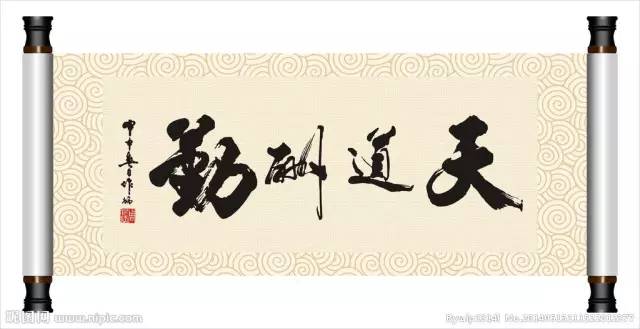 天道酬勤
甲申
昵图网 www.nipic.com